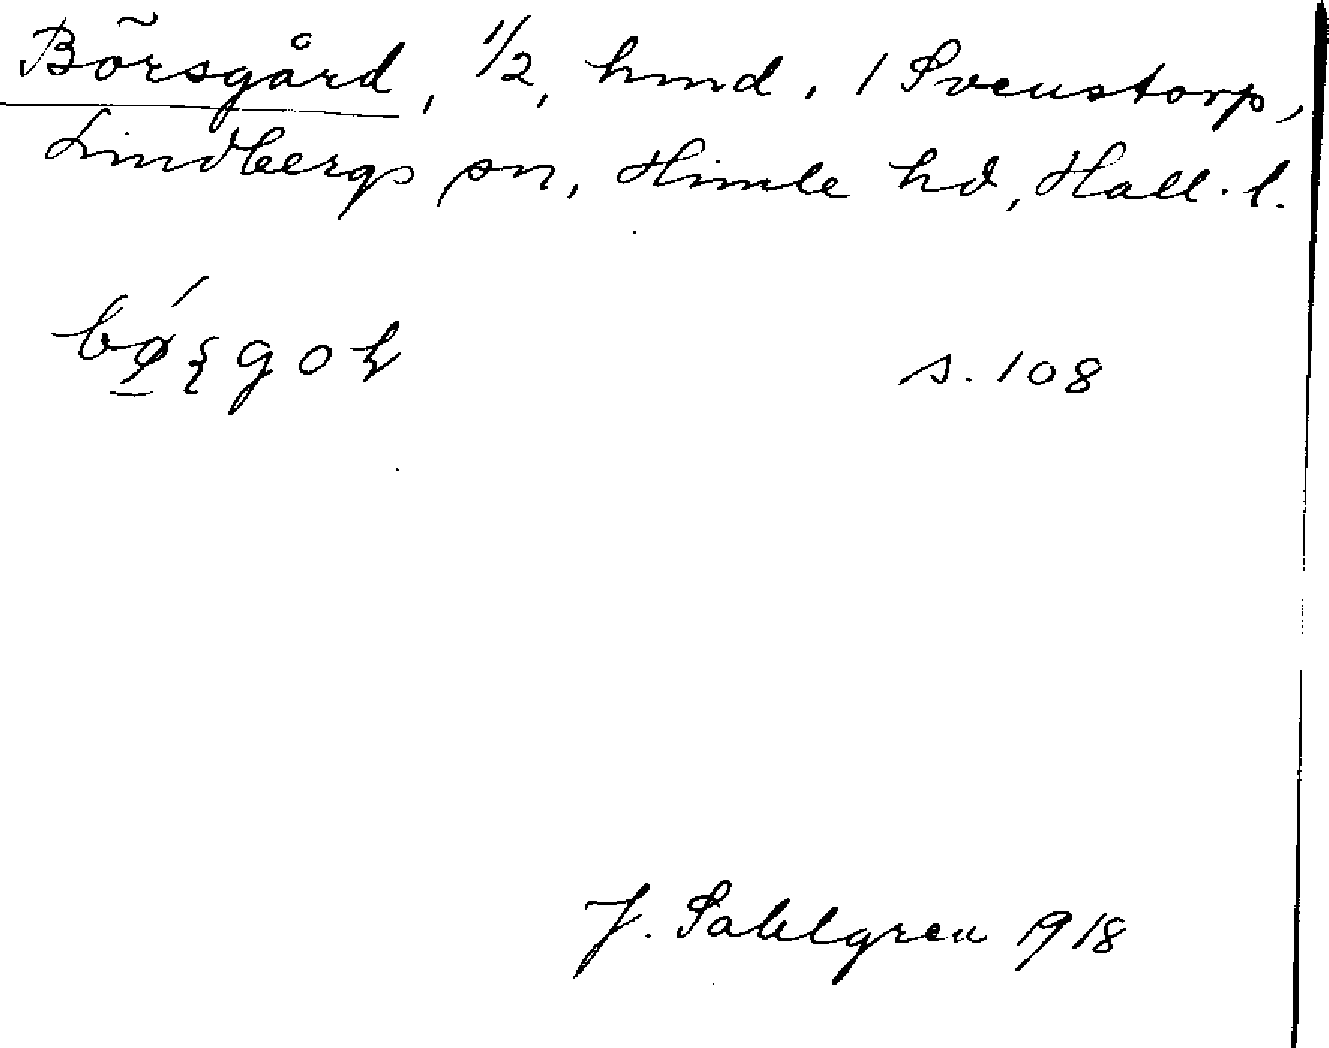 Börsgård, 1/2, hmd. 1 Svenstorp,
Lindbergs sn, Himle hd, Hall. l.
s. 108
J. Sahlgren 1918